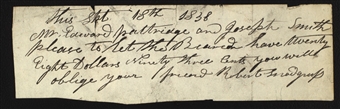 this Sept 18th 1838
Mr. Edward partridge and Joseph Smith
please to let the Bearer have twenty
Eight Dollars Ninety three Cents you will
oblige your friend Robert Snodgrass